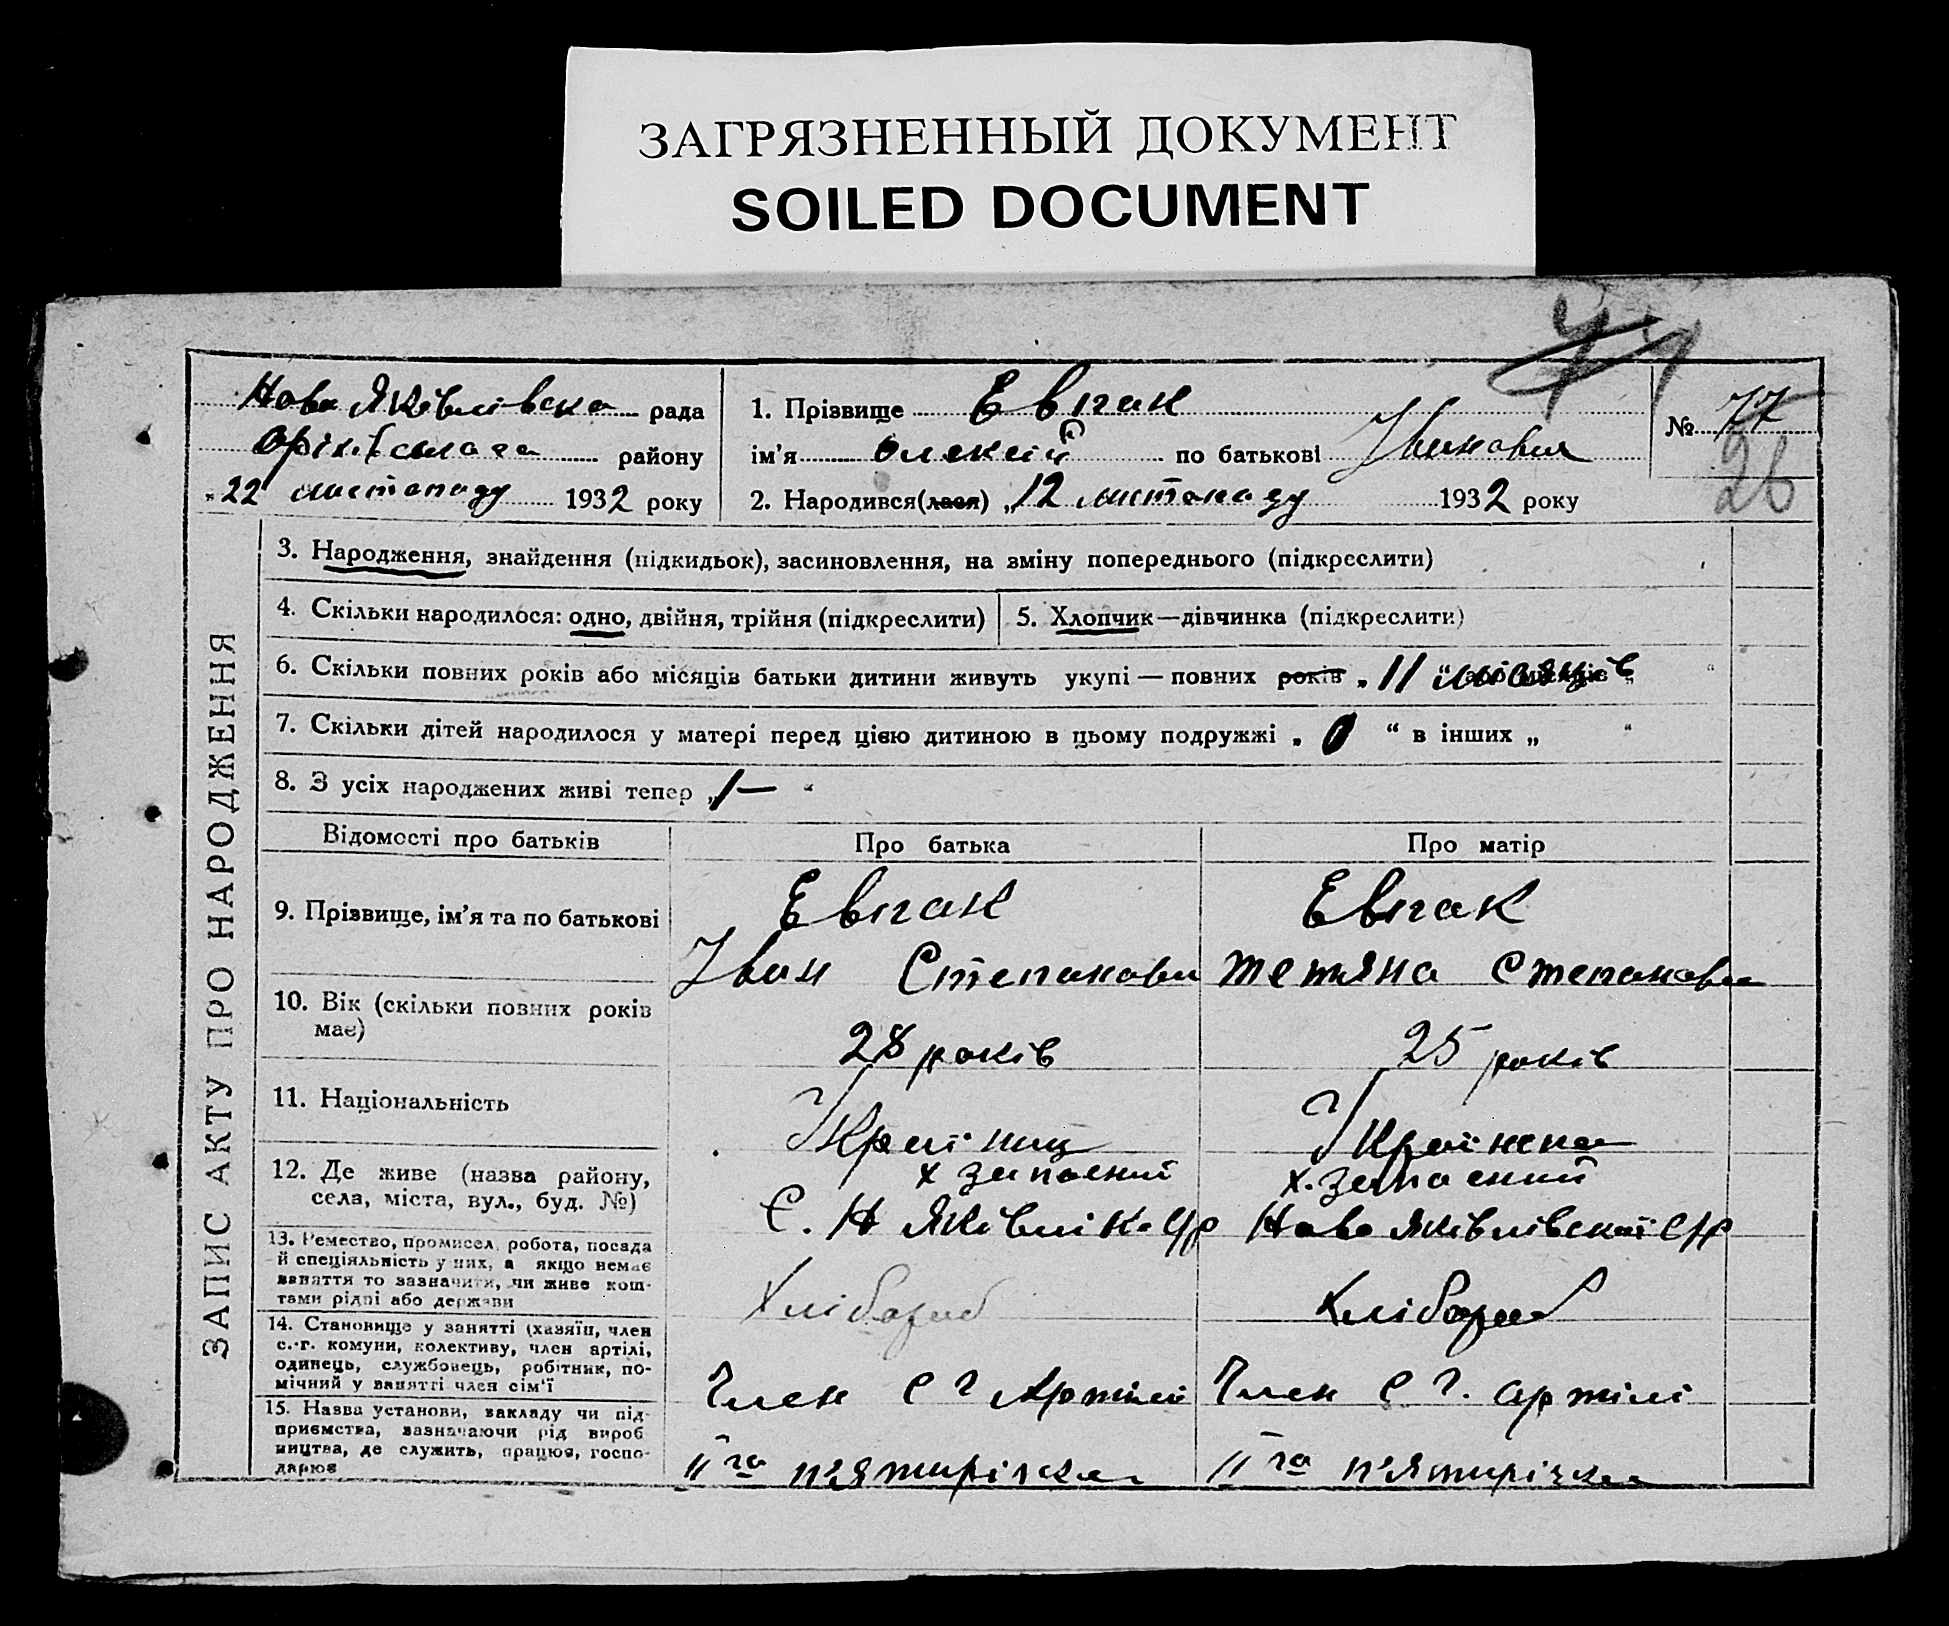 ЗАГРЯЗНЕННЫЙ ДОКУМЕНТ
SOILED DOCUMENT
Ново Яківлівска рада
району
"22 листопаду 1932 року
1. Прізвище Евпак
ім'я Олексій по батькові Іванович
2. Народився(лася) „12 листопаду 1932 року
№ 77
26
ЗАПИС АКТУ ПРО НАРОДЖЕННЯ
3. Народження, знайдення (підкидьок), засиновлення, на зміну попереднього (підкреслити)
4. Скільки народилося: одно, двійня, трійня (підкреслити)
5. Хлопчик—дівчинка (підкреслити)
6. Скільки повних років або місяців батьки дитини живуть укупі — повних років „ 11 місяців "
7. Скільки дітей народилося у матері перед цією дитиною в цьому подружжі „ 0 “ в інших „ “
8. З усіх народжених живі тепер „ 1 — “
Відомості про батьків
Про батька
Про матір
9. Прізвище, ім'я та по батькові
Евпак
Іван Степанович
Евпак
Тетяна Степановна
10. Вік (скільки повних років
має)
28 років
25 років
11. Національність
Українц
Українка
12. Де живе (назва району,
села, міста, вул., буд. №)
х Запасний
Є. Н Яківлівка
х. Запасний
Ново Яківлівскої с/р
13. Ремество, промисел, робота, посада
й спеціяльність у них, а якщо немає
заняття то зазначити, чи живе кош-
тами рідні або держави
Хлібороб
Хлібороб
14. Становище у занятті (хазяїн, член
с.-г. комуни, колективу, член артілі,
одинець, службовець, робітник, по-
мічний у занятті член сім'ї
Член с г Артілі
Член с г. артілі
15. Назва установи, закладу чи під-
приємства, зазначаючи рід вироб
ництва, де служить, працює, госпо-
дарює
II га п'ятирічка
II га п'ятирічка